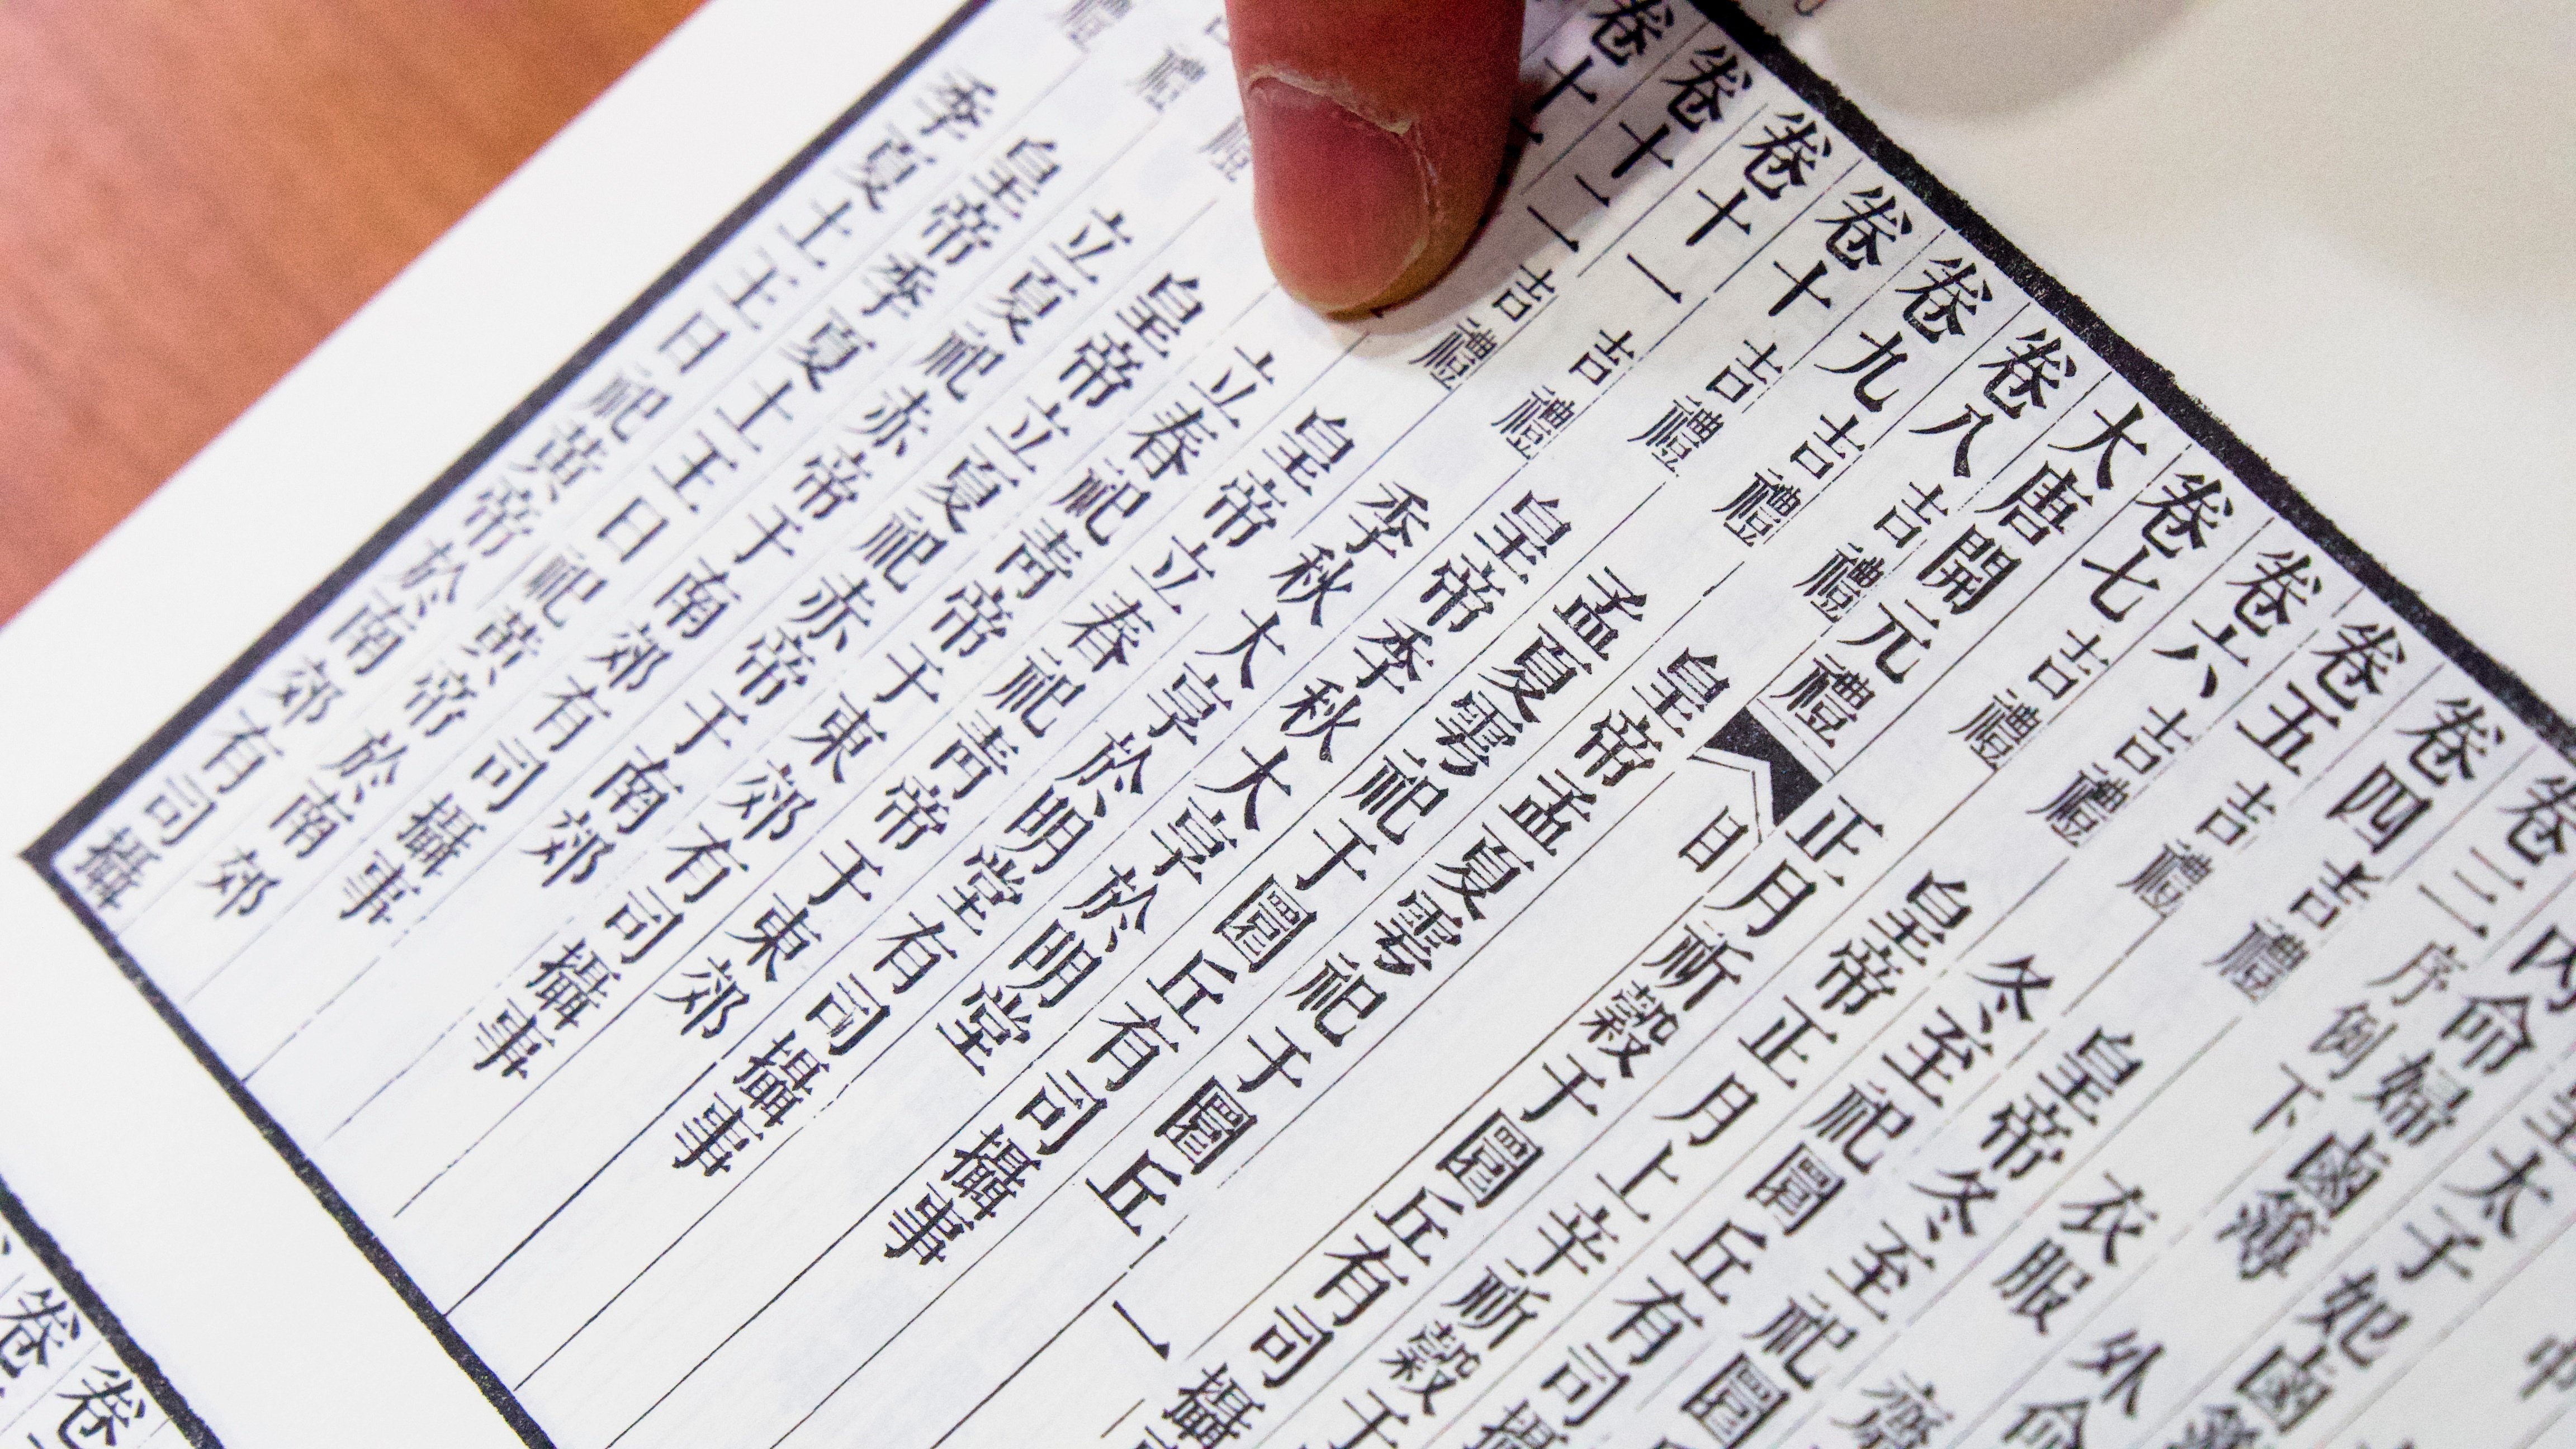 皇太子妃鹵簿 中
內命婦鹵簿 外命
卷三 序例下 衣服 齋
卷四 吉禮 皇帝冬至祀圜
卷五 吉禮 冬至祀圜丘有司攝
卷六 吉禮 皇帝正月上辛祈穀于
卷七 吉禮 正月祈穀于圜丘有司攝
大唐開元禮 目 一
卷八 吉禮 皇帝孟夏雩祀于圜丘
卷九 吉禮 孟夏雩祀于圜丘有司攝事
卷十 吉禮 皇帝季秋大享於明堂
卷十一 吉禮 季秋大享於明堂有司攝事
卷十二 吉禮 皇帝立春祀青帝于東郊
卷十 立春祀青帝于東郊有司攝事
皇帝立夏祀赤帝于南郊
禮 立夏祀赤帝于南郊有司攝事
禮 皇帝季夏土王日祀黃帝於南郊
禮 季夏土王日祀黃帝於南郊有司攝
卷
卷